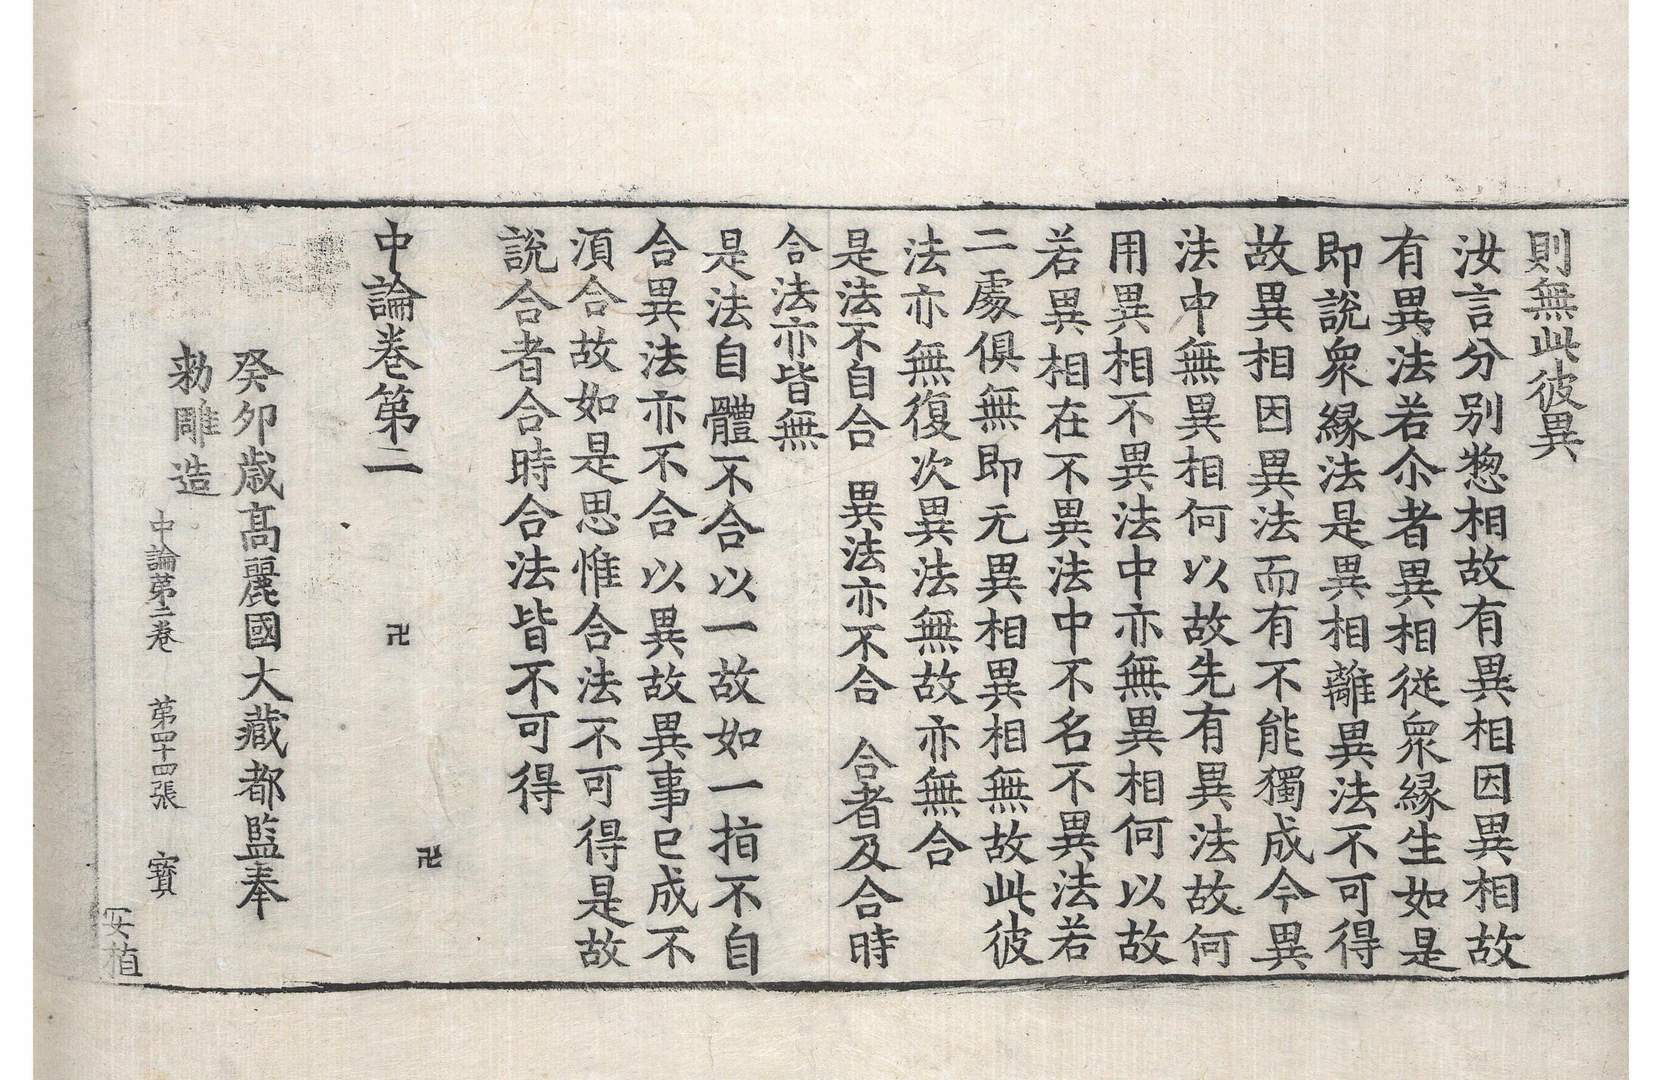 則無此彼異
汝言分別惣相故有異相因異相故
有異法若尒者異相從衆縁生如是
即說衆縁法是異相離異法不可得
故異相因異法而有不能獨成今異
法中無異相何以故先有異法故何
用異相不異法中亦無異相何以故
若異相在不異法中不名不異法若
二處俱無即无異相異相無故此彼
法亦無復次異法無故亦無合
是法不自合　異法亦不合　合者及合時
合法亦皆無
是法自體不合以一故如一指不自
合異法亦不合以異故異事已成不
湏合故如是思惟合法不可得是故
說合者合時合法皆不可得
中論卷第二
卍
卍
癸卯歳高麗國大藏都監奉
勑雕造
中論第二卷　第四十四張　寶